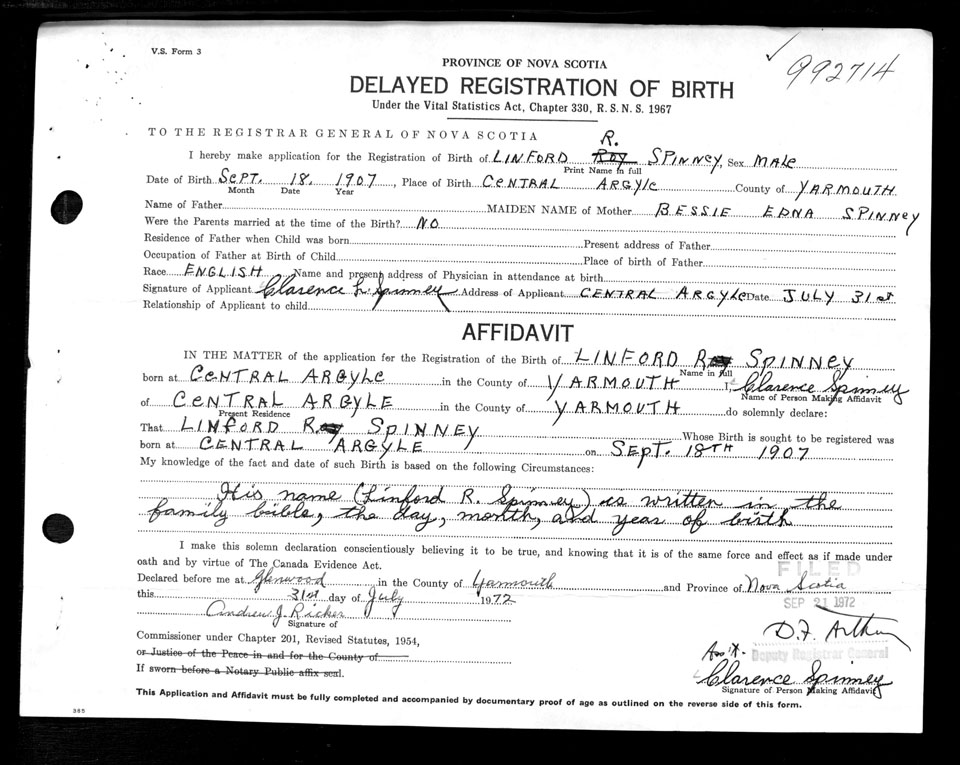 V.S. Form 3
992714
PROVINCE OF NOVA SCOTIA
DELAYED REGISTRATION OF BIRTH
Under the Vital Statistics Act, Chapter 330, R.S.N.S. 1967
TO THE REGISTRAR GENERAL OF NOVA SCOTIA
R.
I hereby make application for the Registration of Birth of LINFORD Roy SPINNEY, Sex MALE
Print Name in full
Date of Birth SEPT. 18. 1907, Place of Birth CENTRAL ARGYLE County of YARMOUTH
Month Date Year
Name of Father MAIDEN NAME of Mother BESSIE EDNA SPINNEY
Were the Parents married at the time of the Birth? NO
Residence of Father when Child was born Present address of Father
Occupation of Father at Birth of Child Place of birth of Father
Race ENGLISH Name and present address of Physician in attendance at birth
Signature of Applicant Clarence L. Spinney Address of Applicant CENTRAL ARGYLE Date JULY 31st
Relationship of Applicant to child
AFFIDAVIT
IN THE MATTER of the application for the Registration of the Birth of LINFORD R SPINNEY
Name in full
born at CENTRAL ARGYLE in the County of YARMOUTH I, Clarence Spinney
Name of Person Making Affidavit
of CENTRAL ARGYLE in the County of YARMOUTH do solemnly declare:
Present Residence
That LINFORD R SPINNEY Whose Birth is sought to be registered was
born at CENTRAL ARGYLE on SEPT. 18TH 1907
My knowledge of the fact and date of such Birth is based on the following Circumstances:
His name (Linford R. Spinney) is written in the
family bible, the day, month, and year of birth
I make this solemn declaration conscientiously believing it to be true, and knowing that it is of the same force and effect as if made under
oath and by virtue of The Canada Evidence Act.
FILED
Declared before me at Glenwood in the County of Yarmouth and Province of Nova Scotia
this 31st day of July 1972
SEP 21 1972
Andrew J. Ricker
Signature of
D.F. Arthur
Commissioner under Chapter 201, Revised Statutes, 1954,
or Justice of the Peace in and for the County of
Ass't. Deputy Registrar General
If sworn before a Notary Public affix seal.
Clarence Spinney
Signature of Person Making Affidavit
This Application and Affidavit must be fully completed and accompanied by documentary proof of age as outlined on the reverse side of this form.
365